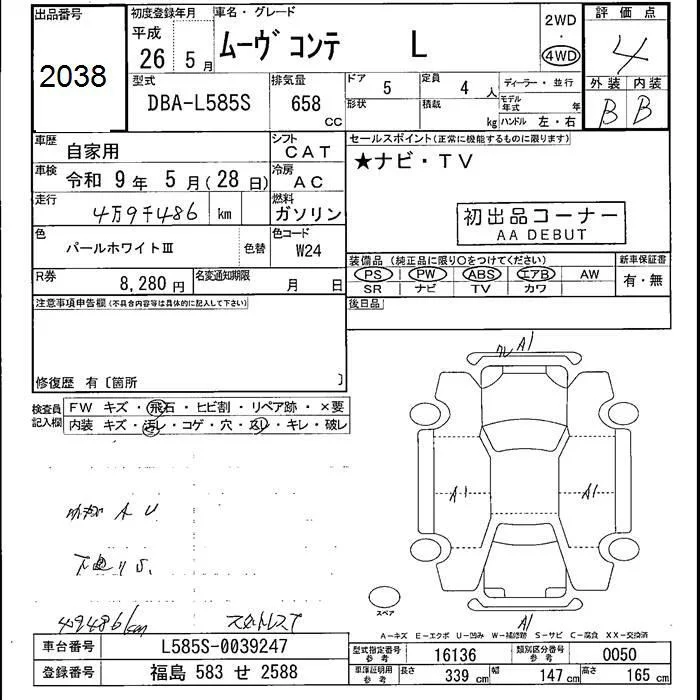 出品番号
2038
初度登録年月
平成
26 5月
車名・グレード
ムーヴ コンテ L
2WD
・
4WD
評価点
4
外装 内装
B B
型式
DBA-L585S
排気量
658
CC
ドア 5
定員 4 人
ディーラー・並行
形状
積載 kg
モデル年式 年
ハンドル 左・右
車歴
自家用
シフト
CAT
セールスポイント(正常に機能するものに限ります)
★ナビ・TV
車検
令和 9年 5月(28日)
冷房
AC
走行
4万9千486 km
燃料
ガソリン
初出品コーナー
AA DEBUT
色
パールホワイトⅢ
色替
色コード
W24
装備品 (純正品に限り○をつけてください)
新車保証書
PS PW ABS エアB AW
有・無
SR ナビ TV カワ
R券
8,280円
名変通知期限
月 日
後日品
注意事項申告欄(不具合内容等は具体的に記入して下さい)
修復歴 有〔箇所 〕
検査員
記入欄
FW キズ・飛石・ヒビ割・リペア跡・×要
内装 キズ・汚レ・コゲ・穴・ハレ・キレ・破レ
A1
A1
A1
A U
下廻りS.
スペア
A1
49486km
スタットレス T
A-キズ E-エクボ U-凹み W-補修跡 S-サビ C-腐食 XX-交換済
車台番号
L585S-0039247
型式指定番号
参考
16136
類別区分番号
参考
0050
登録番号
福島 583 せ 2588
車庫証明用
参考
長さ 339 cm 幅 147 cm 高さ 165 cm